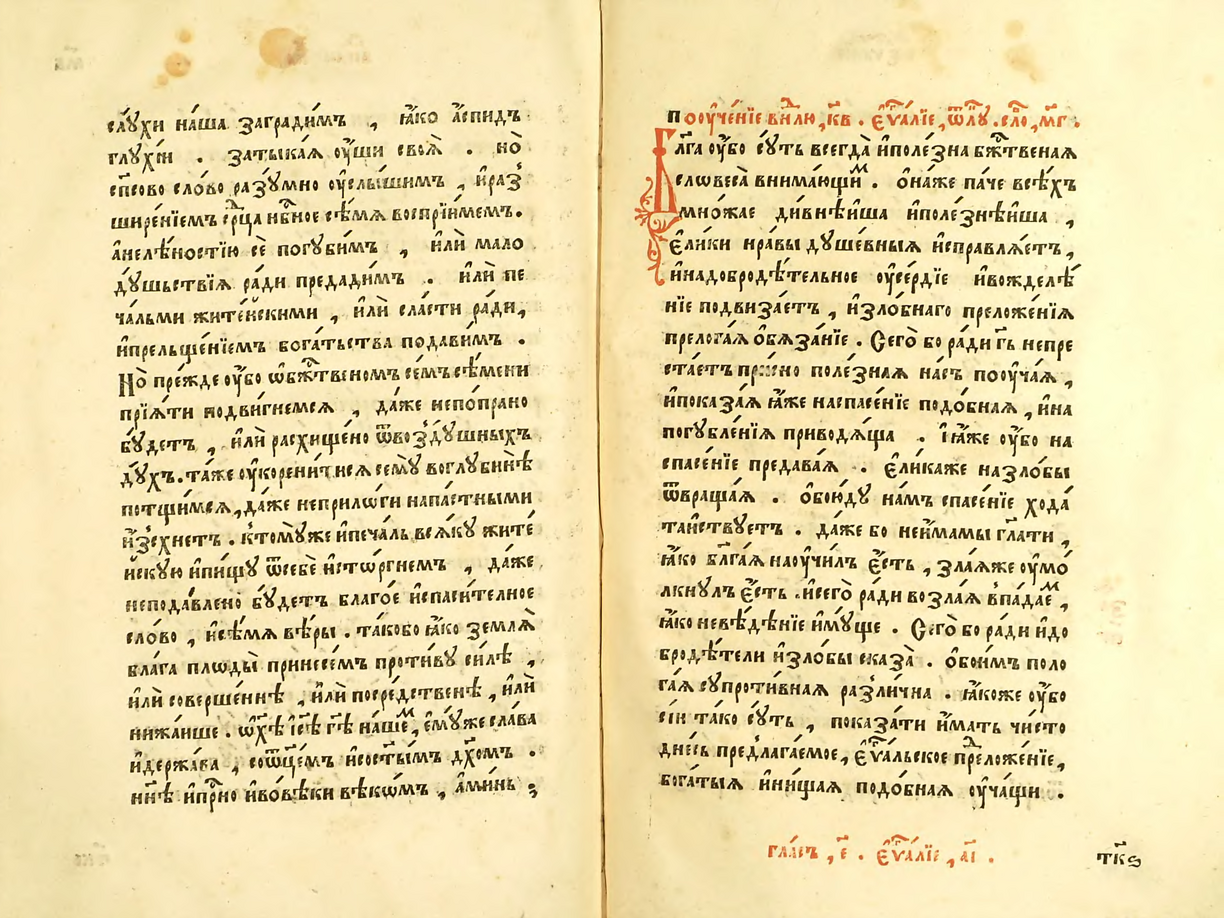 слꙋ́хи на́ша загради́мъ , ꙗ҆́ко а҆́спидъ
глꙋхі́и . затыка́ѧ ᲂу҆́ши своѧ̀ . но̀
сп҃сово сло́во разꙋ́мно ᲂу҆слы́шимъ , и҆раз̾
шире́нїемъ ср҃ца нб҃ное сѣ́мѧ воспрїи́мемъ.
а҆нелѣ́ностїю сѐ погꙋби́мъ , и҆лѝ мало
дꙋ́шьствїѧ ра́ди предади́мъ . и҆лѝ пе
ча́льми жите́йскими , и҆лѝ сла́сти ра́ди,
и҆прельще́нїемъ бога́тьства подави́мъ .
Но̀ пре́жде ᲂу҆́бо ѡ҆бж҃твеномъ се́мъ сѣ́мени
прїѧ́ти подви́гнемсѧ , да́же непо́прано
бꙋ́детъ , и҆лѝ расхище́но ѿвозд̾ꙋ́шныхъ
дꙋ́хъ. та́же ᲂу҆корени́тисѧ семꙋ̀ воглꙋбинѣ̀
потщи́мсѧ, да́же неприлѡ́ги напа́стными
и҆́зсхнетъ . ктомꙋ́же и҆печа́ль всѧ́кꙋ жите́
искꙋю и҆пи́щꙋ ѿсебѐ и҆сто́ргнемъ , да́же
неподавлено̀ бꙋ́детъ благо́е и҆спаси́телное
сло́во , и҆сѣ́мѧ вѣ́ры . та́кобо ꙗ҆́ко землѧ̀
блага плоды̀ принесе́мъ проти́вꙋ си́лѣ ,
и҆лѝ соверше́ннѣ , и҆лѝ посре́дственѣ , и҆лѝ
нижа́ише . ѡ҆х҃ѣ і҆с҃ѣ гд҃ѣ на́шемъ, є҆мꙋ́же сла́ва
и҆держа́ва , соѻц҃е́мъ и҆сост҃ы́мъ дх҃омъ .
нн҃ѣ и҆при́сно и҆вовѣ́ки вѣкѡ́мъ , а҆ми́нь ;
поᲂуче́нїе внⷣлю, кв . є҆ѵⷢ҇а́лїе, ѿлꙋ . сло, мг .
Бл҃га ᲂу҆́бо сꙋ́ть всегда̀ и҆поле́зна бж҃твеная
словеса̀ внима́ющиⷨ . ѻ҆на́же па́че всѣ́хъ
мно́жае ди́внѣиша и҆поле́знѣиша ,
є҆ли́ки нра́вы дꙋше́вныѧ и҆справлѧ́етъ,
и҆надобродѣ́тельное ᲂу҆се́рдїе и҆вожделѣ́
нїе подвиза́етъ , и҆зло́бнаго преложе́нїѧ
прелога́ѧ ѡ҆бѧза́нїе . Сего̀ бо ра́ди гд҃ь непре
ста́етъ при́сно поле́зная на́съ поᲂуча́ѧ ,
и҆показа́ѧ ꙗ҆́же наспасе́нїе подо́бная , и҆на
погꙋбле́нїѧ приводѧ́ща . І҆ ꙗ҆́же ᲂу҆́бо на
спасе́нїе предава́ѧ . є҆ли́каже на зло́бы
ѿвраща́ѧ . ѻ҆бою́дꙋ на́мъ спасе́нїе хода́
та́йствꙋетъ . да́же бо не и҆́мамы гл҃ати ,
ꙗ҆́ко бл҃га́ѧ наᲂучи́лъ є҆́сть , зла́ѧже ᲂу҆мо́
лкнꙋлъ є҆́сть . и҆сего̀ ра́ди возла́ѧ впада́еⷨ ,
ꙗ҆́ко невѣ́дѣнїе и҆мꙋ́ще . Сего̀ бо ра́ди и҆до
бродѣ́тели и҆зло́бы сказа̀ . ѻ҆бои́мъ поло
га́ѧ сꙋпроти́вная разли́чна . ꙗ҆́коже ᲂу҆́бо
сі́и та́ко сꙋ́ть , показа́ти и҆́мать чи́сто
дне́сь предлага́емое, є҆ѵⷢ҇а́льское преложе́нїе,
бога́тыѧ и҆ни́щаѧ подо́бная ᲂу҆ча́щи .
гла́съ , є҃ . є҆ѵⷢ҇а́лїе , а҃і .
тк҃ѕ